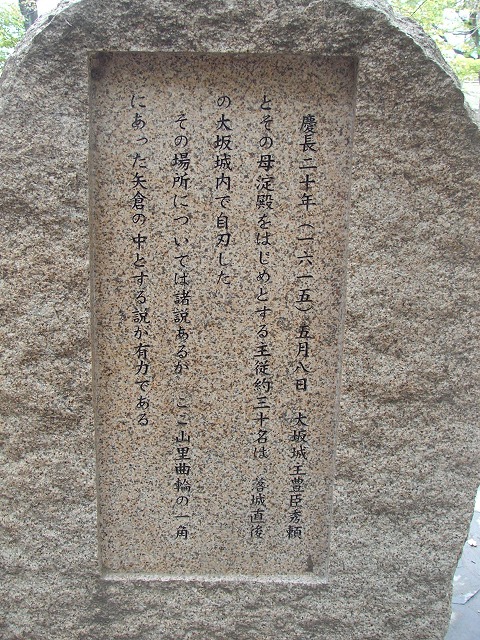 慶長二十年（一六一五）五月八日　大坂城主豊臣秀頼
とその母淀殿をはじめとする主従約三十名は　落城直後
の大坂城内で自刃した
その場所については諸説あるが　ここ山里曲輪の一角
にあった矢倉の中とする説が有力である